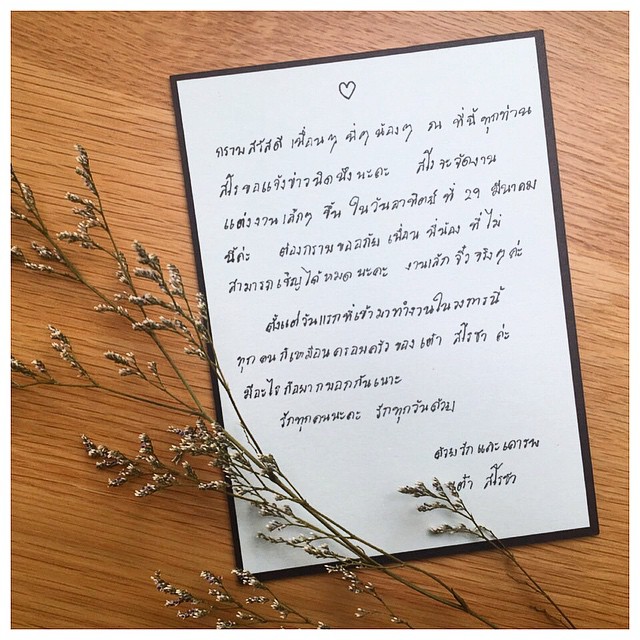 กราบสวัสดี เพื่อนๆ พี่ๆ น้องๆ ณ ที่นี้ทุกท่าน
สโรขอแจ้งข่าวนิดนึงนะคะ สโรจะจัดงาน
แต่งงานเล็กๆ ขึ้น ในวันอาทิตย์ ที่ 29 มีนาคม
นี้ค่ะ ต้องกราบขออภัย เพื่อน พี่น้อง ที่ไม่
สามารถเชิญได้หมดนะคะ งานเล็ก จิ๋ว จริงๆ ค่ะ
ตั้งแต่วันแรกที่เข้ามาทำงานในวงการนี้
ทุกคนก็เหมือนครอบครัวของเต้า สโรชา ค่ะ
มีอะไรก็อยากบอกกันเนาะ
รักทุกคนนะคะ รักทุกวันด้วย
ด้วยรักและเคารพ
เต้า สโรชา